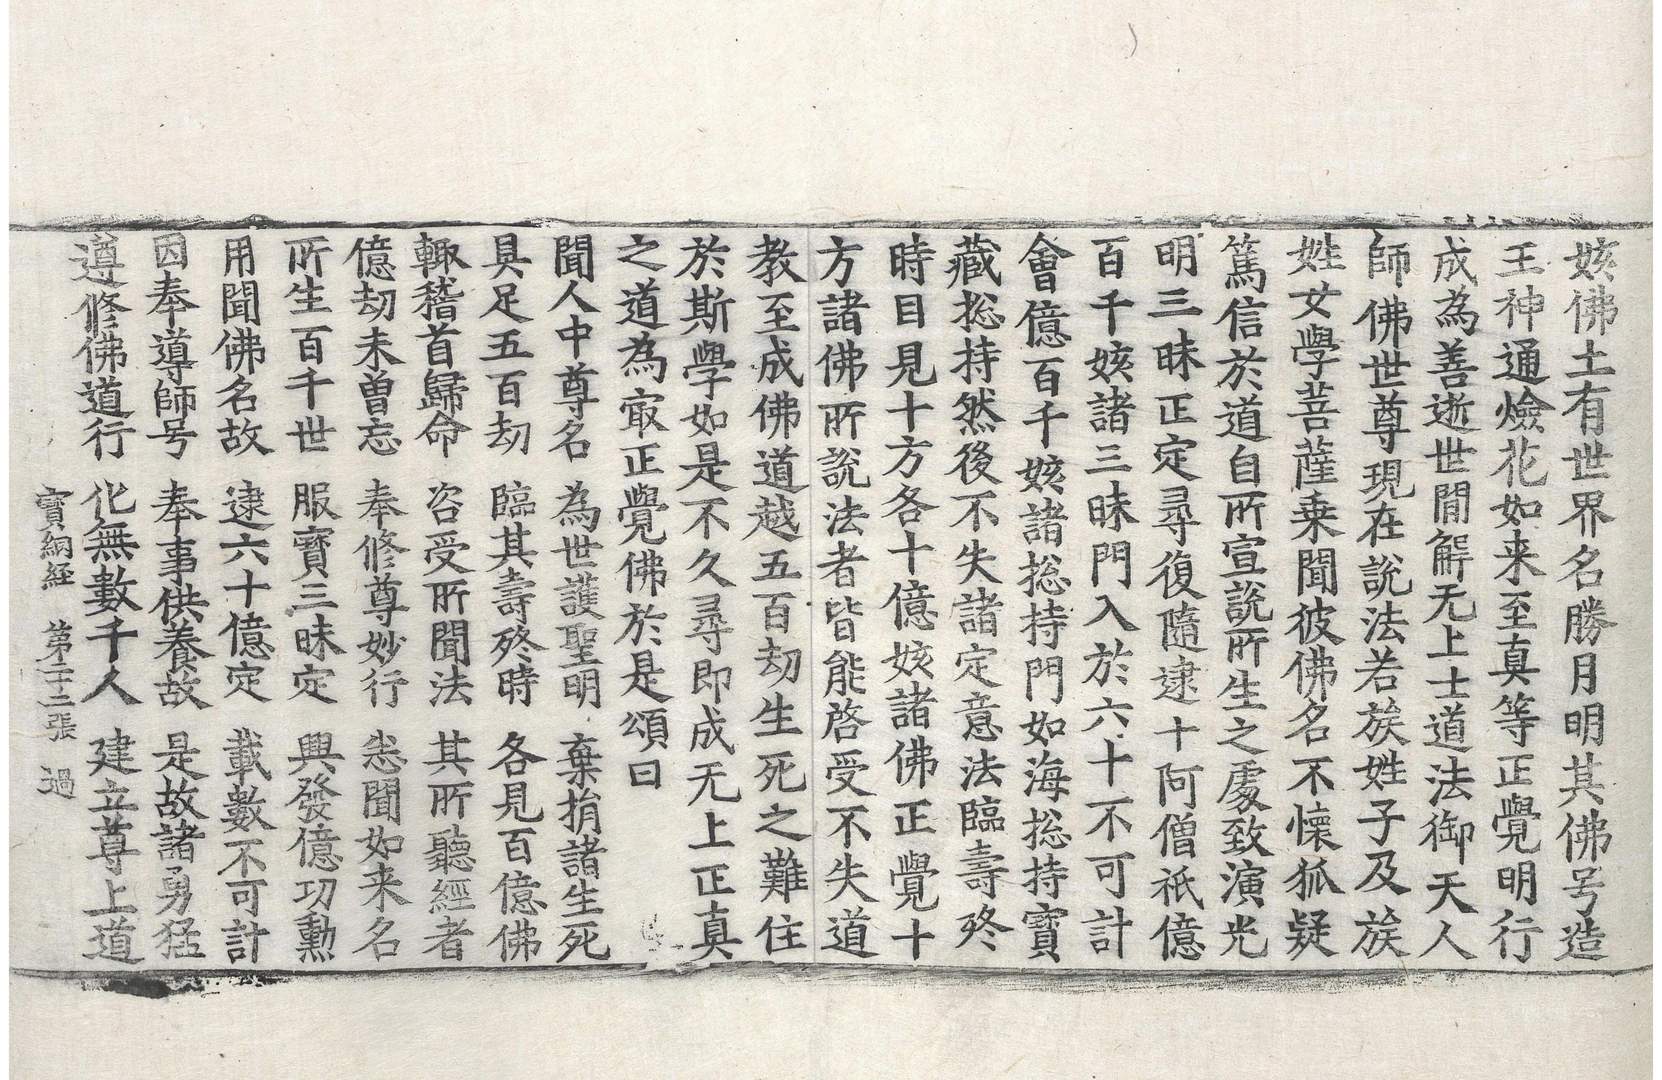 姟佛土有世界名勝月明其佛号造
王神通燄花如来至真等正覺明行
成為善逝世間解无上士道法御天人
師佛世尊現在說法若族姓子及族
姓女學菩薩乗聞彼佛名不懷狐疑
篤信於道自所宣說所生之處致演光
明三昧正定尋復隨逮十阿僧祇億
百千姟諸三昧門入於六十不可計
會億百千姟諸揔持門如海揔持寶
藏揔持然後不失諸定意法臨壽終
時目見十方各十億姟諸佛正覺十
方諸佛所說法者皆能啓受不失道
教至成佛道越五百劫生死之難住
於斯學如是不久尋即成无上正真
之道為㝡正覺佛於是頌曰
聞人中尊名　為世護聖明　棄捐諸生死
具足五百劫　臨其壽終時　各見百億佛
輙稽首歸命　咨受所聞法　其所聽經者
億劫未曽忘　奉修尊妙行　悉聞如来名
所生百千世　服寶三昧定　興發億功勳
用聞佛名故　逮六十億定　載數不可計
因奉導師号　奉事供養故　是故諸勇猛
遵修佛道行　化無數千人　建立尊上道
寶網経　第二十三張　過